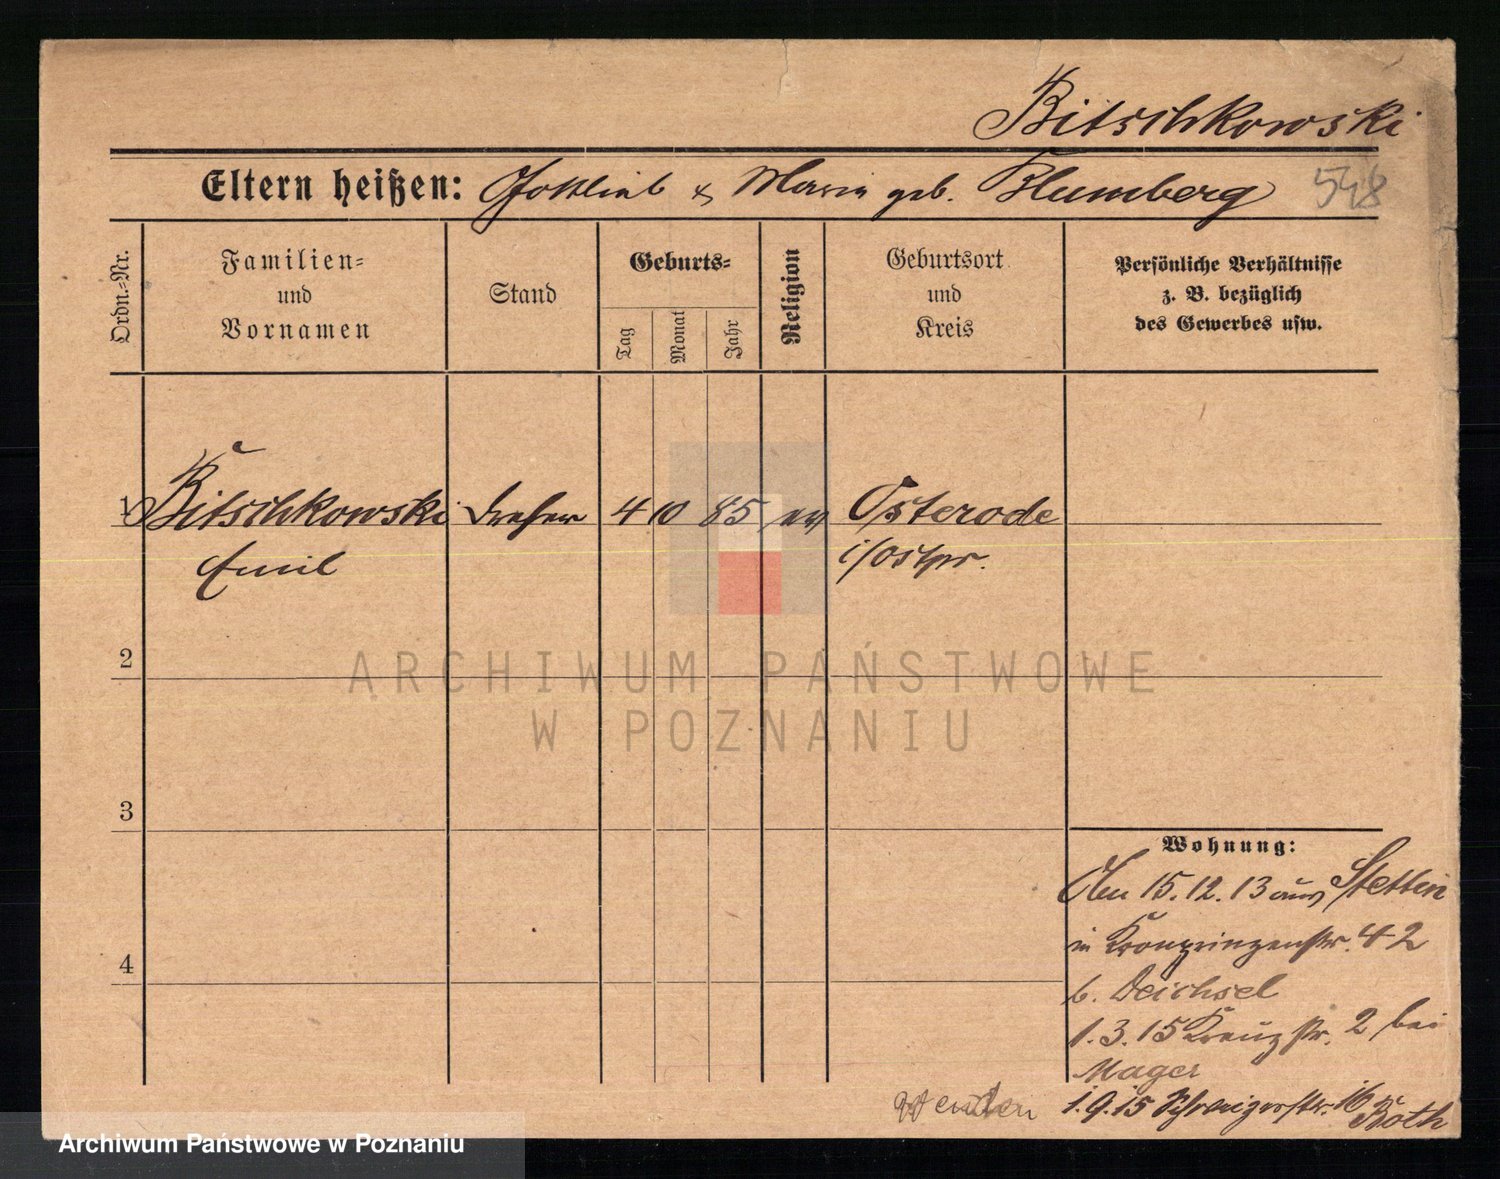 Bitschkowski
Eltern heißen: Gottlieb & Maria geb. Blumberg 548
Ordn.-Nr.
Familien-
und
Vornamen
Stand
Geburts-
Tag
Monat
Jahr
Religion
Geburtsort
und
Kreis
Persönliche Verhältnisse
z. B. bezüglich
des Gewerbes usw.
1 Bitschkowski Dreher 4 10 85 ev Osterode
Emil i/Ostpr.
2
ARCHIWUM PAŃSTWOWE
W POZNANIU
3
Wohnung:
Am 15.12.13 aus Stettin
in Kronprinzenstr. 42
4
b. Deichsel
1.3.15 Kreuzstr. 2 bei
Mager
Wenden
1.9.15 16 b. Roth
Archiwum Państwowe w Poznaniu